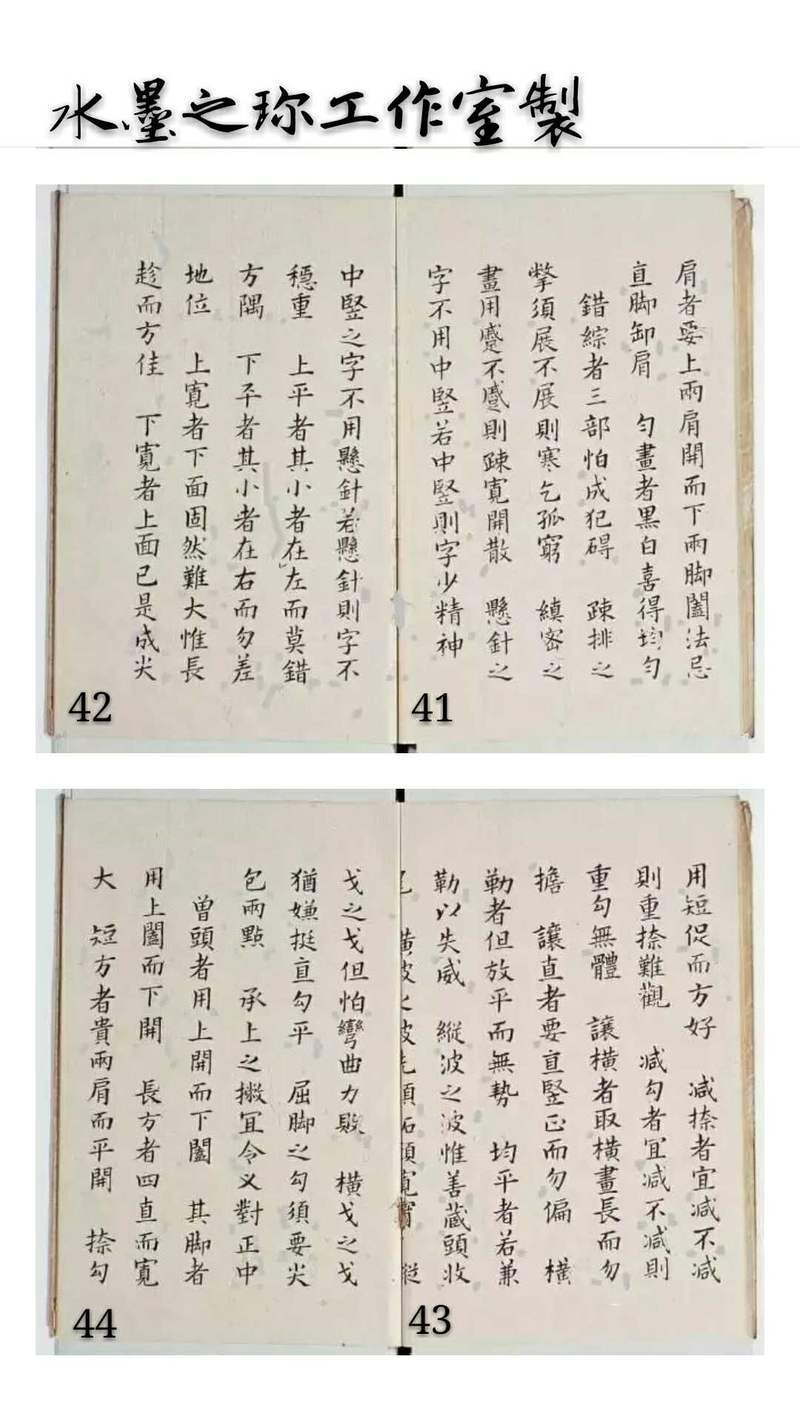 水墨之珎工作室製
肩者要上兩肩開而下兩脚闔法忌
直脚卸肩 勻畫者黑白喜得均勻
錯綜者三部怕成犯碍 踈排之
撆須展不展則寒乞孤窮 縝密之
畫用蹙不蹙則踈寬開散 懸針之
字不用中竪若中竪則字少精神
41
中竪之字不用懸針若懸針則字不
穩重 上平者其小者在左而莫錯
方隅 下平者其小者在右而勿差
地位 上寬者下面固然難大惟長
趁而方佳 下寬者上面已是成尖
42
用短促而方好 減捺者宜減不減
則重捺難觀 減勾者宜減不減則
重勾無體 讓橫者取橫畫長而勿
擔 讓直者要直竪正而勿偏 橫
勒者但放平而無勢 均平者若兼
勒以失威 縱波之波惟善藏頭收
尾 橫波之波先須拓頭寬 縱
43
戈之戈但怕彎曲力敗 橫戈之戈
猶嫌挺直勾平 屈脚之勾須要尖
包兩點 承上之撇宜令乂對正中
曽頭者用上開而下闔 其脚者
用上闔而下開 長方者四直而寬
大 短方者貴兩肩而平開 捺勾
44